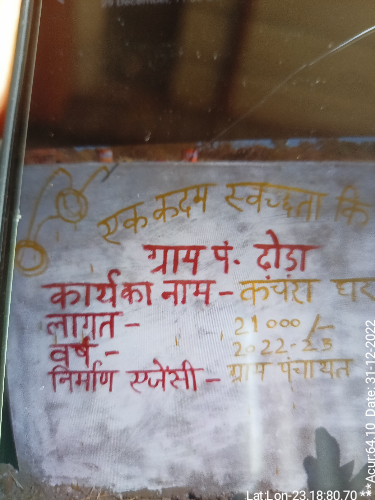 एक कदम स्वच्छता कि
ग्राम पं. ढोड़ा
कार्य का नाम - कचरा घर
लागत - 21000/-
वर्ष - 2022-23
निर्माण एजेंसी - ग्राम पंचायत
Lat:Lon-23,18:80,70
**Acur:64.10 Date: 31-12-2022